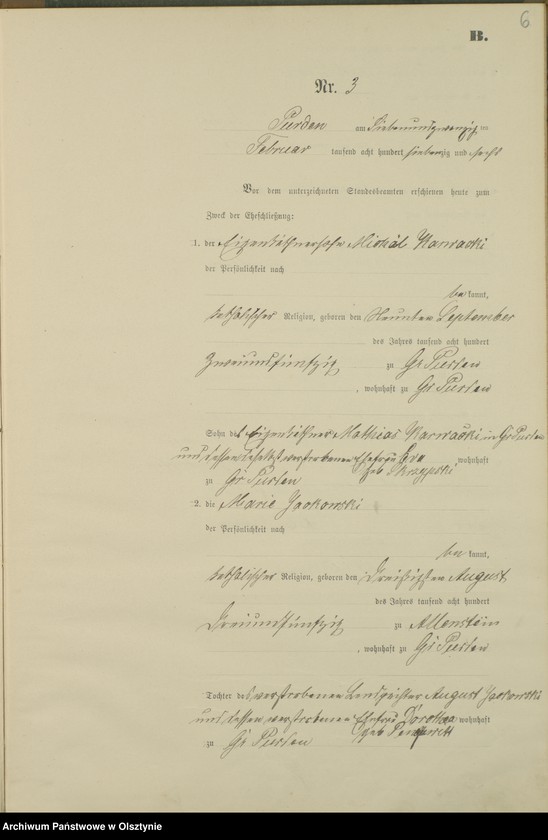 6
B.
Nr. 3
Purden am Siebenundzwanzig ten
Februar tausend acht hundert siebenzig und sechs
Vor dem unterzeichneten Standesbeamten erschienen heute zum
Zweck der Eheschließung:
1. der Eigenkäthnersohn Michal Karwacki
der Persönlichkeit nach
be kannt,
katholischer Religion, geboren den Neunten September
des Jahres tausend acht hundert
Zweiundfünfzig zu Gr Purden
, wohnhaft zu Gr Purden
Sohn des Eigenkäthner Mathias Karwacki in Gr Purden
und dessen verstorbenen Ehefrau Eva
geb Skrzypski wohnhaft
zu Gr Purden
2. die Marie Jackowski
der Persönlichkeit nach
be kannt,
katholischer Religion, geboren den Dreißigsten August
des Jahres tausend acht hundert
Dreiundfünfzig zu Allenstein
, wohnhaft zu Gr Purden
Tochter des verstorbenen August Jackowski
und dessen verstorbenen Ehefrau Dorothea wohnhaft
geb
zu Gr Purden
Archiwum Państwowe w Olsztynie